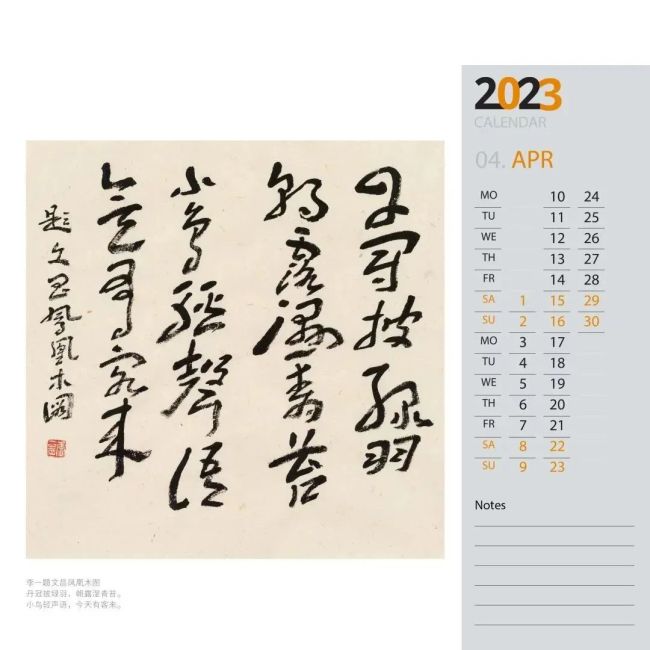 丹冠披绿羽
朝露湿青苔
小鸟轻聲语
今天有客来
题文昌鳳凰木图
李一题文昌凤凰木图
丹冠披绿羽，朝露湿青苔。
小鸟轻声语，今天有客来。
2023
CALENDAR
04. APR
MO 10 24
TU 11 25
WE 12 26
TH 13 27
FR 14 28
SA 1 15 29
SU 2 16 30
MO 3 17
TU 4 18
WE 5 19
TH 6 20
FR 7 21
SA 8 22
SU 9 23
Notes